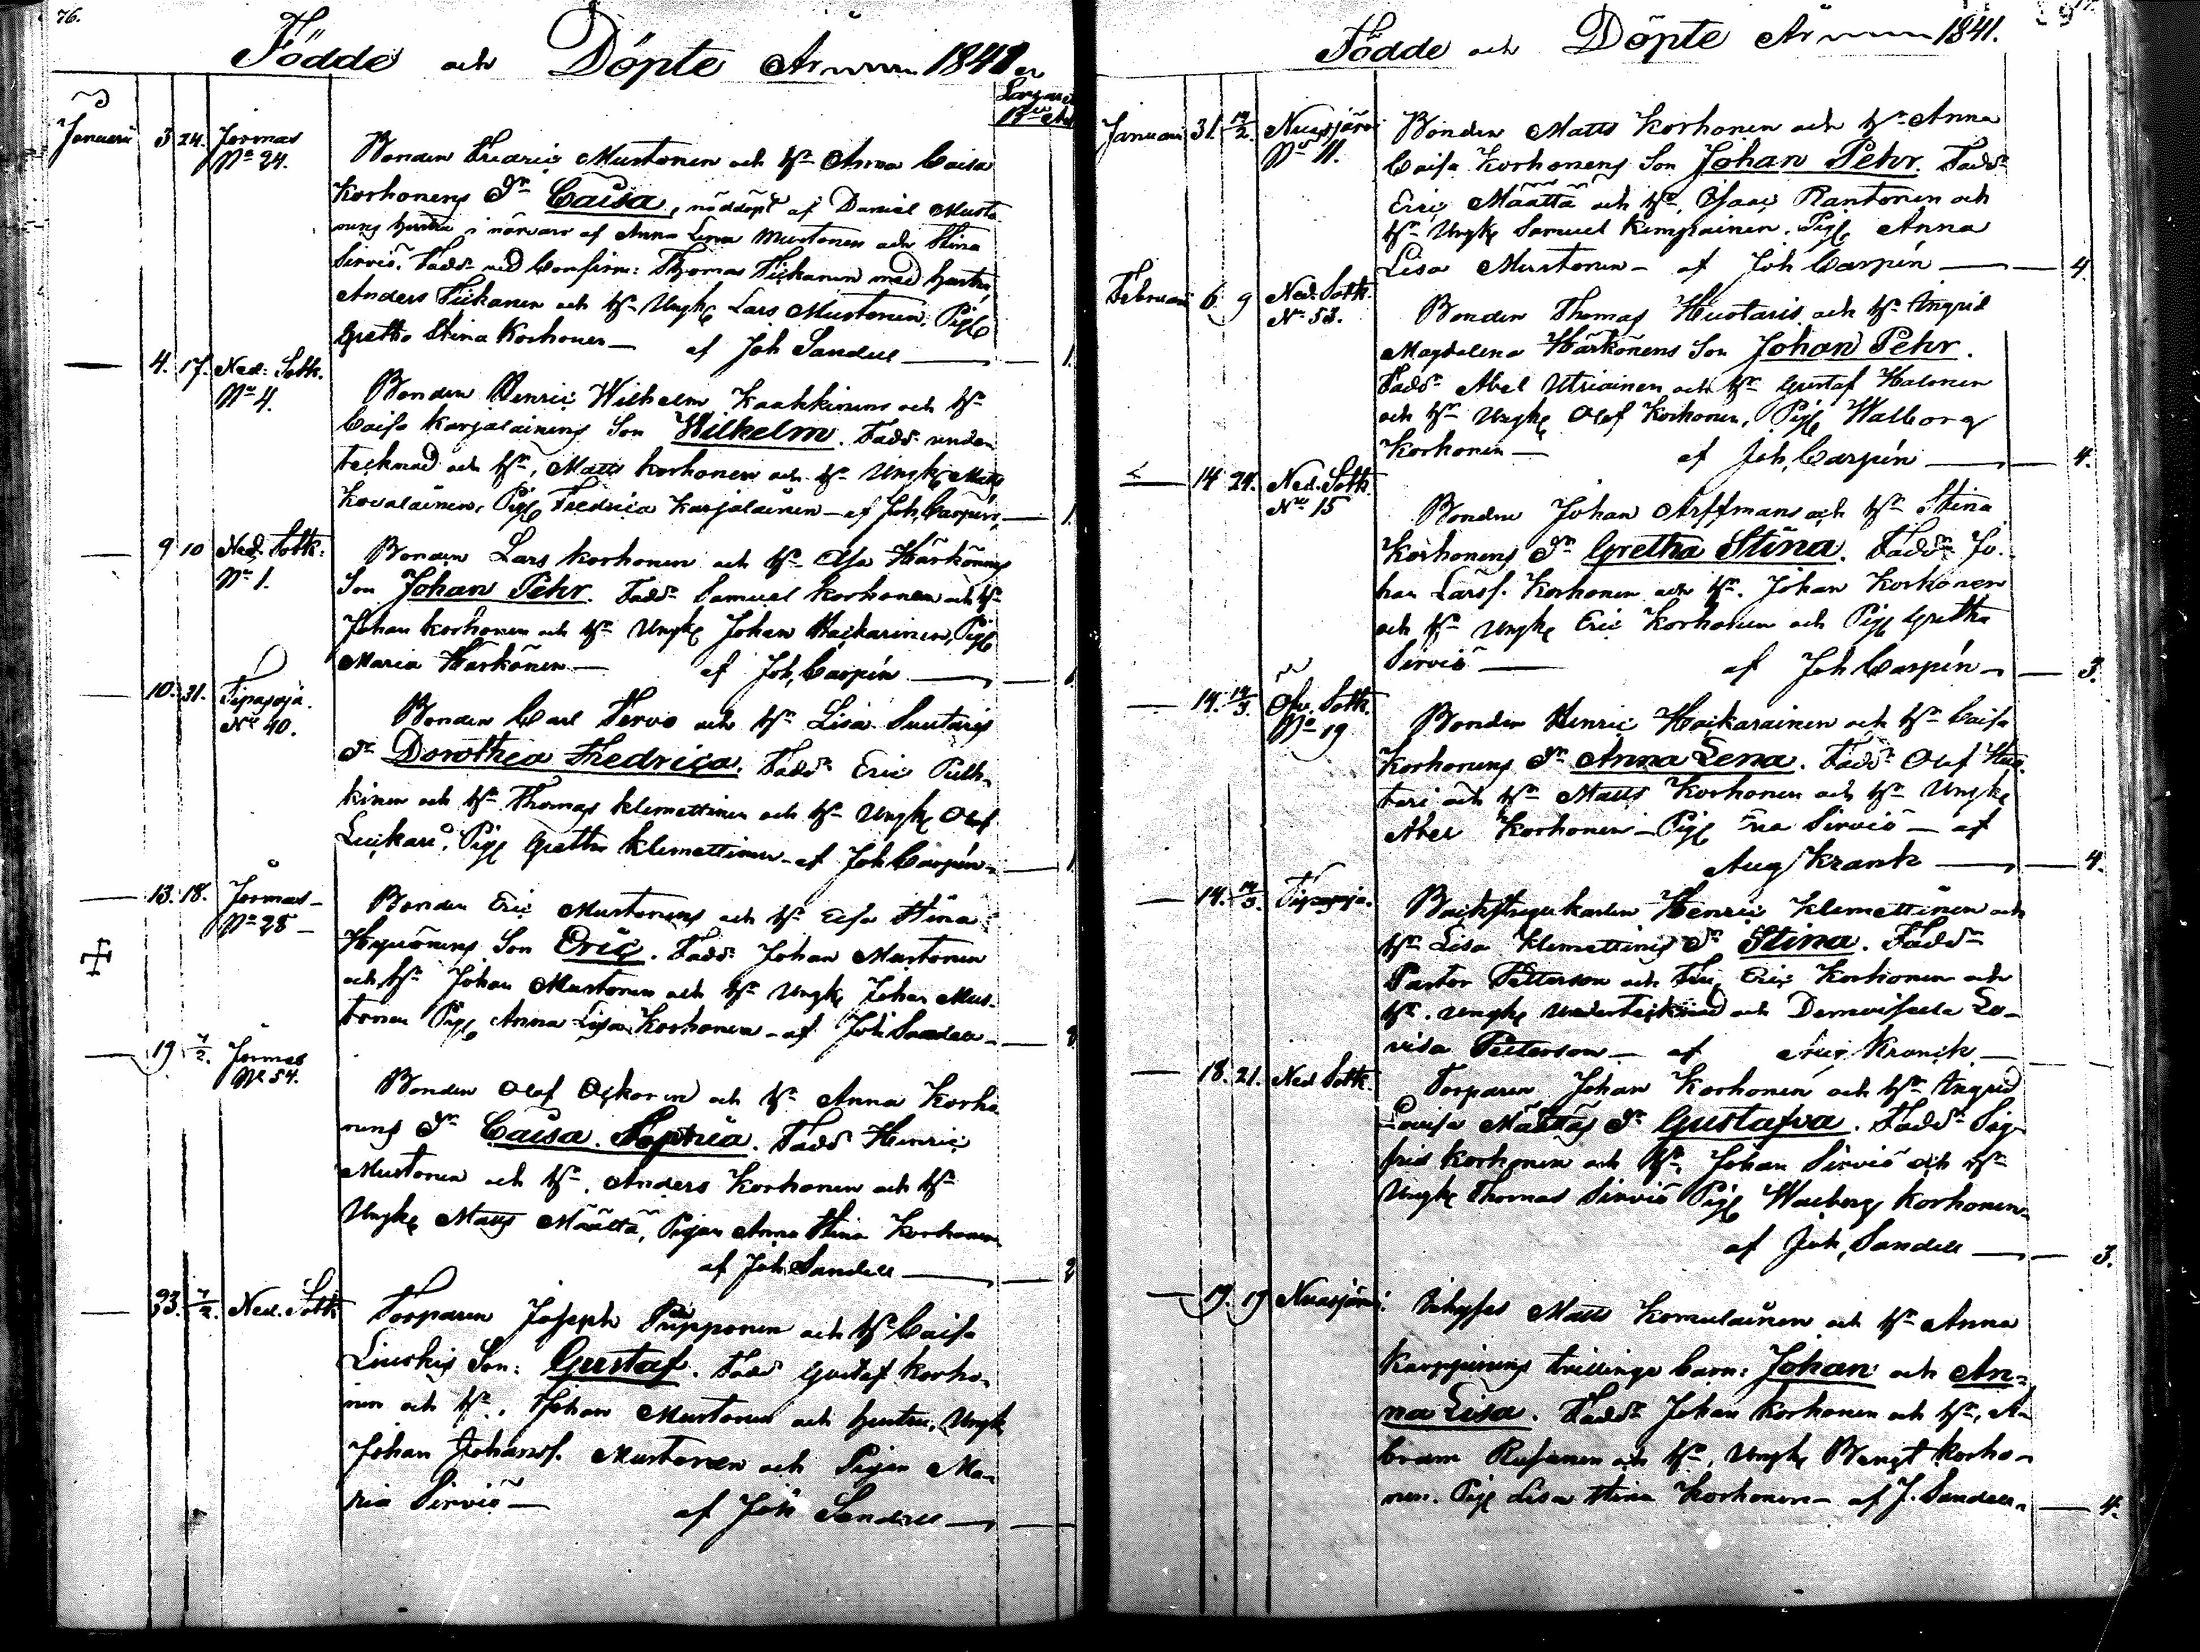 76.
Födde och Döpte År 1841
Januari 3 24. Jormas
No 24.
Bonden Fredric Mustonen och Hu Anna Caisa
Korhonens Dr Caisa, nöddöpt af Daniel Musto
nens hustru i närvaro af Anna Lena Mustonen och Stina
Sirviö. Fadd: vid Confirm: Thomas Tickanen med hustru,
Anders Tickanen och Hu Ungk Lars Mustonen, Pig
Gretha Stina Korhonen — af Joh Sandell — 1.
— 4. 17. Ned: Sotk.
No 4.
Bonden Henric Wilhelm Kaakkinens och Hu
Caisa Karjalainens Son Wilhelm. Fadd: under
tecknad och Hu, Matts Korhonen och Hu Ungk Matts
Kovalainen, Pig Fredrica Karjalainen — af Joh, Carpén, — 1.
— 9 10 Ned: Sotk:
No 1.
Bonden Lars Korhonen och Hu Elsa Härkönens
Son Johan Pehr. Fadd: Samuel Korhonen och Hu
Johan Korhonen och Hu Ungk Johan Haikarinen, Pig
Maria Härkönen — af Joh, Carpén — 1.
— 10. 31. Tipasoja.
No 40.
Bonden Carl Tervo och Hu Lisa Suutaris
Dr Dorothea Fredrica. Fadd: Eric Pulk-
kinen och Hu Thomas Klemettinen och Hu Ungk Olof
Luikari, Pig Gretha Klemettinen — af Joh Carpén — 1
— 13. 18. Jormas —
No 28 —
Bonden Eric Mustonens och Hu Elsa Stina
Son Eric. Fadd: Johan Mustonen
och Hu Johan Mustonen och Hu Ungk Johan Mus-
tonen Pig Anna Lisa Korhonen — af Joh Sandell —
— 19 7/2. Jormas
No 54.
Bonden Olof och Hu Anna Korho
nens Dr Caisa Sophia. Fadd: Henric
Mustonen och Hu, Anders Korhonen och Hu
Ungk Matts Määttä, Pigan Anna Stina Korhonen
af Joh, Sandell — 2
— 23. 7/2. Ned. Sotk
Torparen Joseph Piipponen och Hu Caisa
Liuskis Son: Gustaf. Fadd Gustaf Korho-
nen och Hu, Johan Mustonen och hustru, Ungk
Johan Johanss. Mustonen och Pigan Ma-
ria Sirviö — af Joh Sandell —
Födde och Döpte År 1841.
Januari 31. 14/2. Nuasjärvi
No 11.
Bonden Matts Korhonen och Hu Anna
Caisa Korhonens Son Johan Pehr. Fadd:
Eric Määttä och Hu, Isaac Rantonen och
Hu Ungk Samuel Kimpiainen. Pig Anna
Lisa Mustonen — af Joh Carpén — 4.
Februari 6 9 Ned: Sotk.
No 53.
Bonden Thomas Huotaris och Hu Ingrid
Magdalena Härkönens Son Johan Pehr.
Fadd: Abel Utriainen och Hu Gustaf Halonen
och Hu Ungk Olof Korhonen, Pig Walborg
Korhonen — af Joh, Carpén — 4.
— 14 24. Ned. Sotk.
No 15
Bonden Johan Arffmans och Hu Stina
Korhonens Dr Gretha Stina. Fadd: Jo-
han Larss. Korhonen och Hu. Johan Korhonen
och Hu Ungk Eric Korhonen och Pig Gretha
Sirviö — af Joh Carpén — 3.
— 14. 14/3. Öfv. Sotk.
No 19
Bonden Henric Haikarainen och Hu Caisa
Korhonens Dr Anna Lena. Fadd: Olof Huo-
tari och Hu Matts Korhonen och Hu Ungk
Abel Korhonen — Pig Eva Sirviö — af
Aug Krank — 4.
— 14. 14/3. Tipasoja.
Backstugukarlen Henric Klemettinen och
Hu Lisa Klemettinens Dr Stina. Fadd:
Pastor Petterson och Fru, Eric Korhonen och
Hu. Ungk Undertecknad och Demoiselle Lo-
visa Petterson — af Aug Krank —
— 18. 21. Ned Sotk.
Torparen Johan Korhonen och Hu Ingrid
Lovisa Määttäs Dr Gustafva. Fadd: Sig-
frid Korhonen och Hu, Johan Sirviö och Hu
Ungk Thomas Sirviö Pig Walborg Korhonen
af Joh, Sandell — 3.
— 19. 19 Nuasjärvi
Inhyses Matts Komulainen och Hu Anna
Karppinens trillings barn: Johan och An-
na Lisa. Fadd: Johan Korhonen och Hu, A-
bram Rusanen och Hu, Ungk Bengt Korho-
nen. Pig Lisa Stina Korhonen — af J. Sandell — 4.